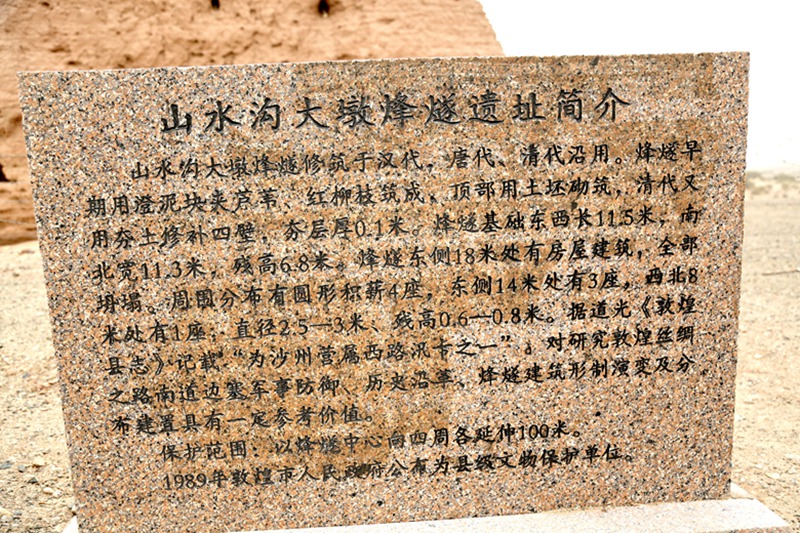 山水沟大墩烽燧遗址简介
山水沟大墩烽燧修筑于汉代，唐代、清代沿用。烽燧早
期用澄泥块夹芦苇、红柳枝筑成，顶部用土坯砌筑，清代又
用夯土修补四壁，夯层厚0.1米。烽燧基础东西长11.5米，南
北宽11.3米，残高6.8米。烽燧东侧18米处有房屋建筑，全部
坍塌。周围分布有圆形积薪4座，东侧14米处有3座，西北8
米处有1座，直径2.5—3米、残高0.6—0.8米。据道光《敦煌
县志》记载“为沙州营属西路汛卡之一”。对研究敦煌丝绸
之路南道边塞军事防御、历史沿革、烽燧建筑形制演变及分
布建置具有一定参考价值。
保护范围：以烽燧中心向四周各延伸100米。
1989年敦煌市人民政府公布为县级文物保护单位。